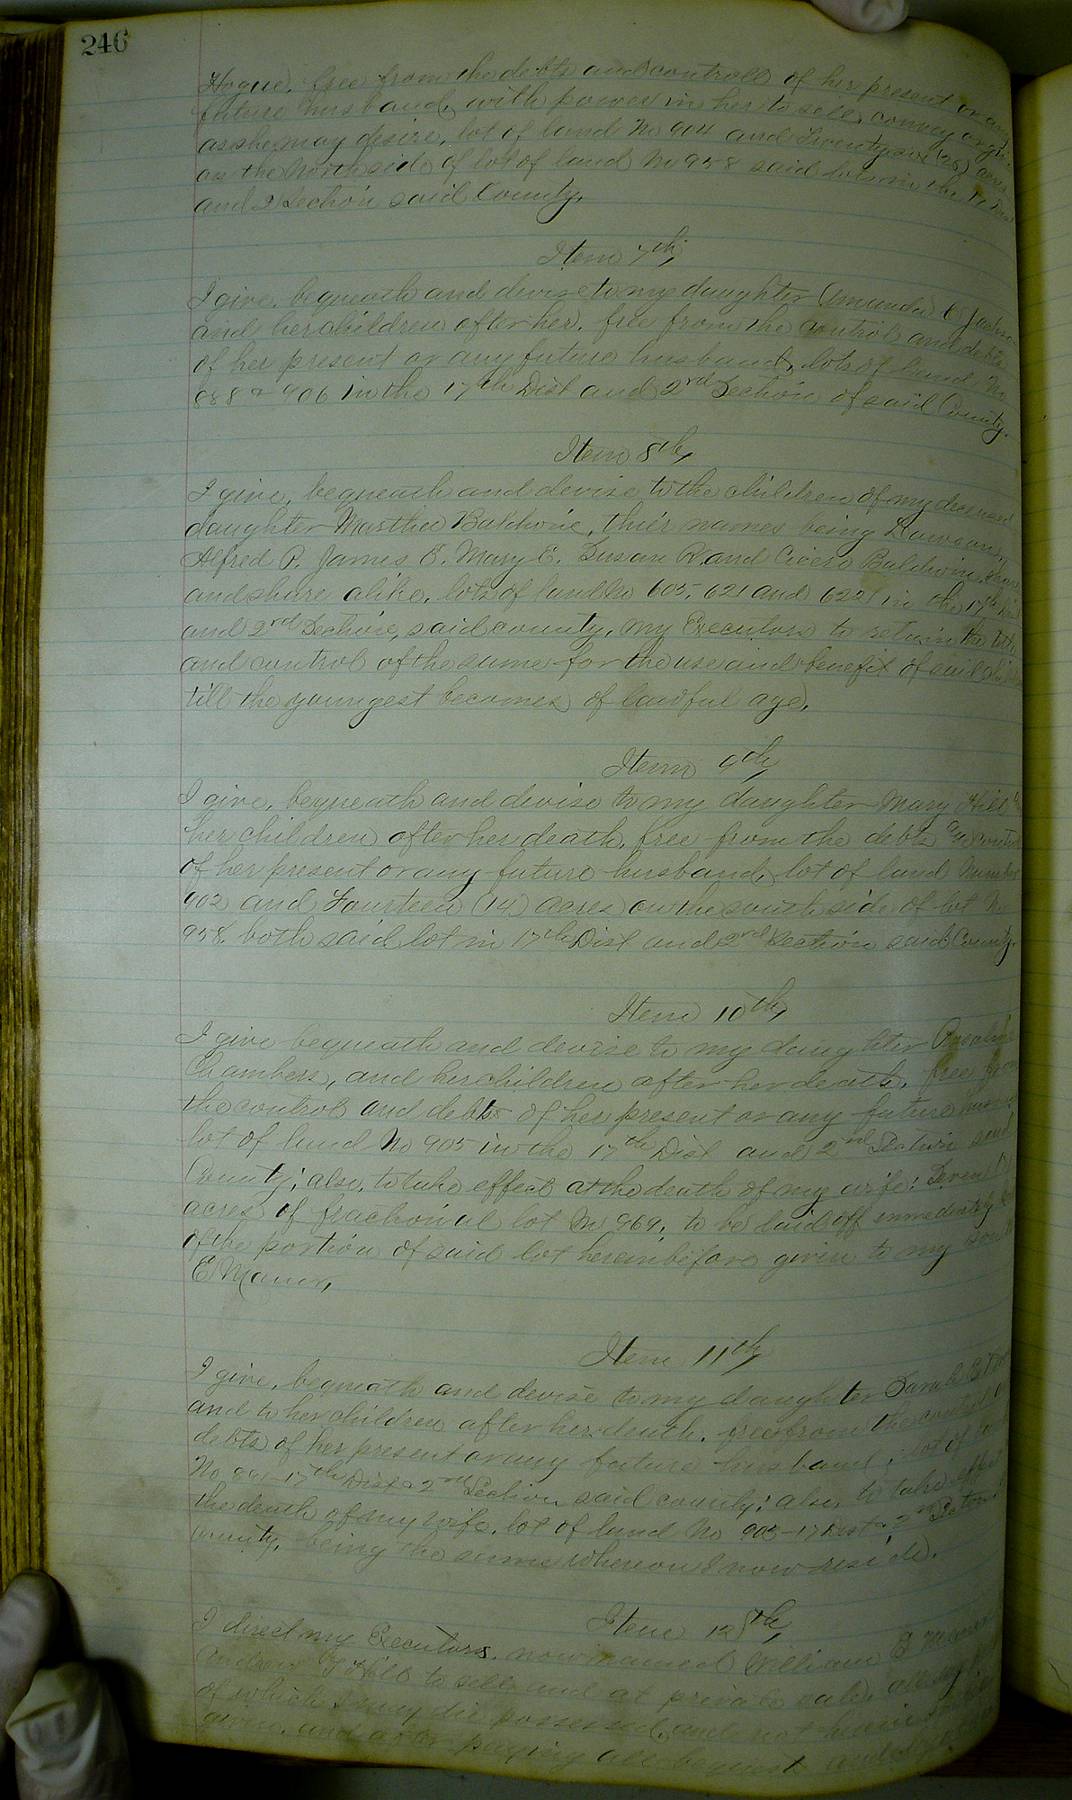 246
Hogue, free from the debts and controll of her present or any
future husband, with power in her to sell, convey or
as she may desire, lot of land No 904 and Twenty six (26) acres
on the North side of lot of land No 958 said lots in the 17 Dist
and 2 Section said County,
Item 7th,
I give, bequeath and devise to my daughter Amanda C Jackson
and her children after her, free from the control and debts
of her present or any future husband, lots of land No
888 & 906 in the 17th Dist and 2nd Section of said County.
Item 8th,
I give, bequeath and devise to the children of my deceased
daughter Martha Baldwin, their names being Dawson,
Alfred P. James E. Mary E. Susan R and Cicero Baldwin, share
and share alike, lots of land No 605, 621 and 622 in the 17th Dist
and 2nd Section, said county, my Executors to retain the title
and control of the same for the use and benefit of said children
till the youngest becomes of lawful age,
Item 9th,
I give, bequeath and devise to my daughter Mary Hill &
her children after her death, free from the debts and control
of her present or any future husband, lot of land Number
902 and Fourteen (14) acres on the south side of lot No
958. both said lot in 17th Dist and 2nd Section said County.
Item 10th,
I give bequeath and devise to my daughter
Chambers, and her children after her death, free from
the control and debts of her present or any future husband
lot of land No 905 in the 17th Dist and 2nd Section said
County; also, to take effect at the death of my wife; Seven (7)
acres of fractional lot No 969, to be laid off immediately
of the portion of said lot hereinbefore given to my son
E Manor,
Item 11th,
I give, bequeath and devise to my daughter Sarah B
and to her children after her death, free from the control &
debts of her present or any future husband, lot of land
No 891 - 17th Dist & 2nd Section said county; also, to take effect
the death of my wife, lot of land No 903 - 17 Dist & 2nd Section
county, being the same whereon I now reside.
Item 12th,
I direct my Executors, now named William
Andrew J Hill to sell and at private sale, all my
of which I may die possessed, and not herein
given, and after paying all bequest and